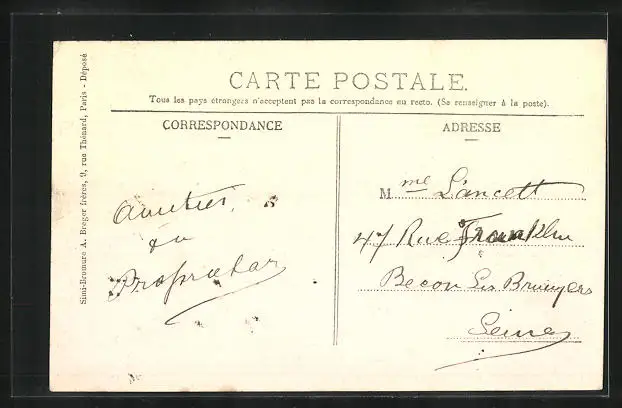 CARTE POSTALE.
Tous les pays étrangers n'acceptent pas la correspondance au recto. (Se renseigner à la poste).
CORRESPONDANCE
ADRESSE
Simi-Bromure A. Breger frères, 9, rue Thénard, Paris - Déposé
Amitiés
du
Propriétar
Mme Lancett
47 Rue Franklin
Becon Les Bruyers
Seine